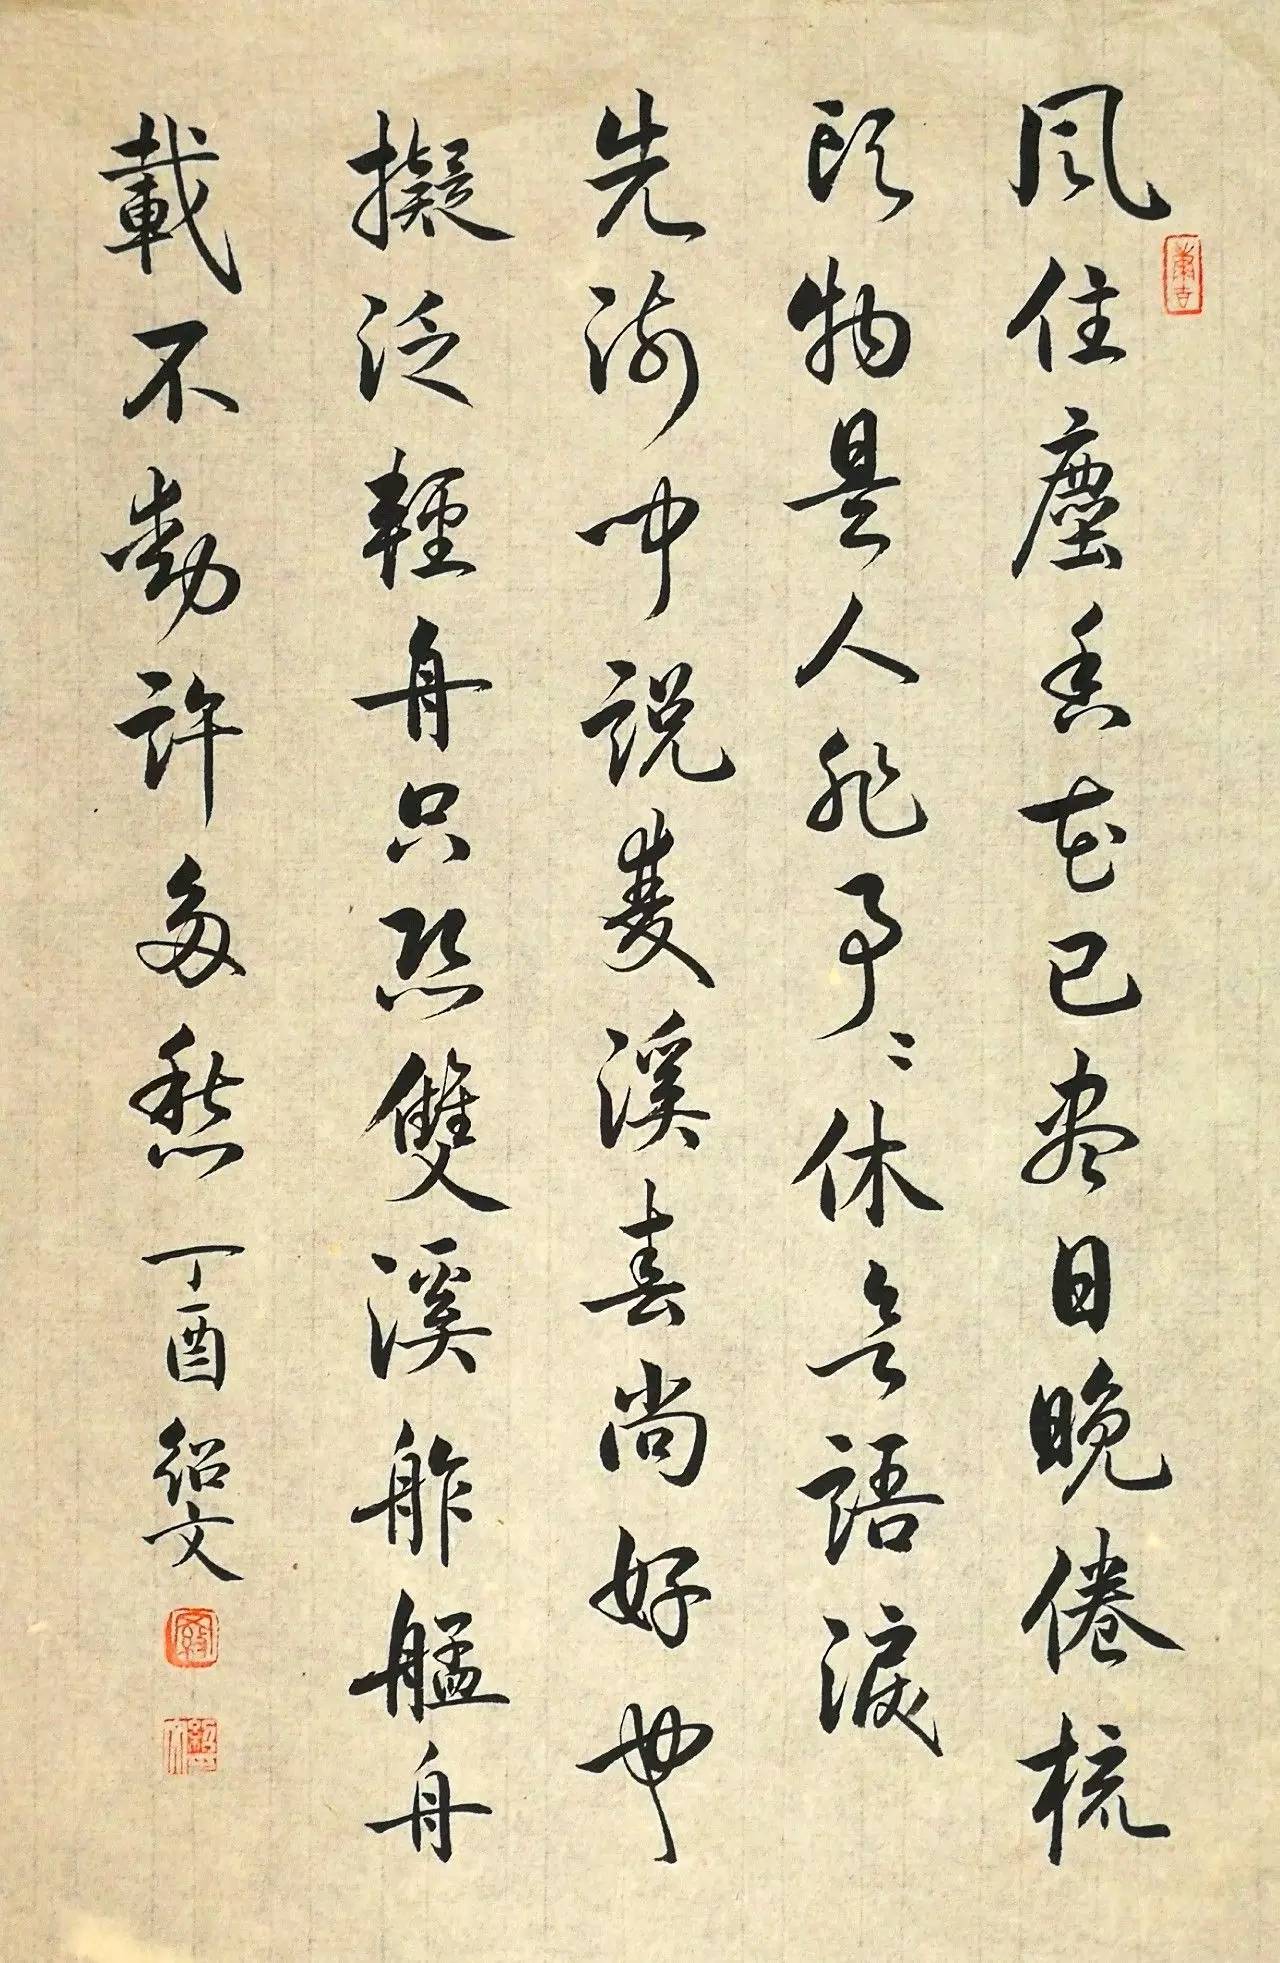 風住塵香花已尽日晚倦梳
頭物是人非事〻休無語淚
先流聞説雙溪春尚好也
擬泛輕舟只恐雙溪舴艋舟
載不動許多愁 丁酉 紹文